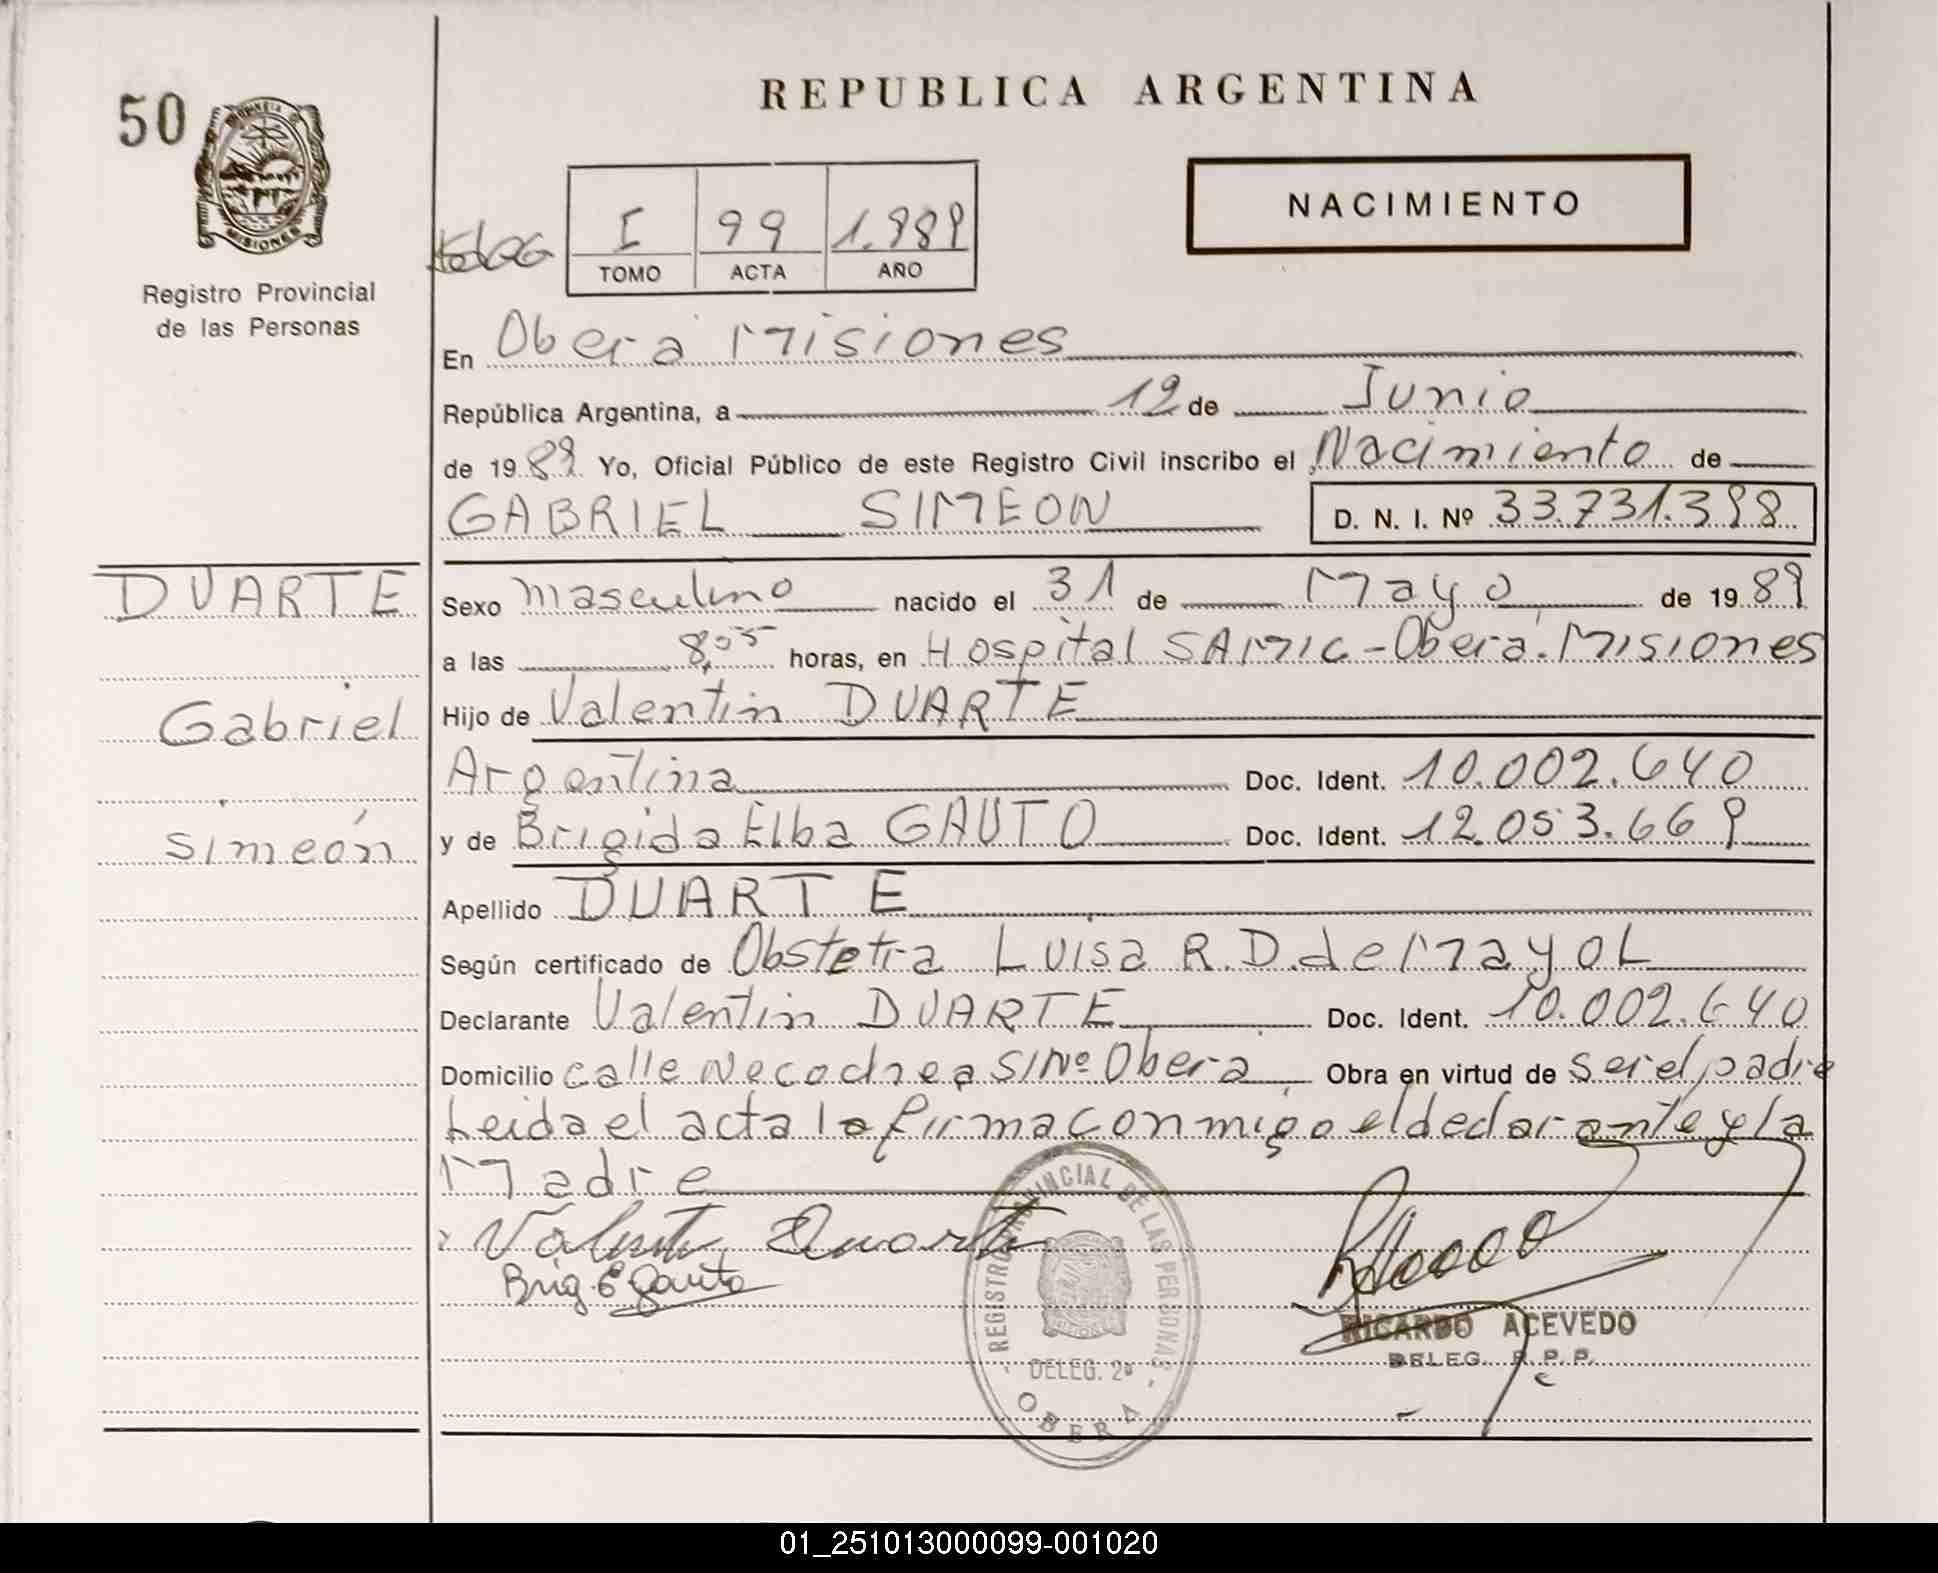 REPUBLICA ARGENTINA
50
PROVINCIA DE
MISIONES
Registro Provincial
de las Personas
I 99 1.989
TOMO ACTA AÑO
NACIMIENTO
En Oberá Misiones
República Argentina, a 12 de Junio
de 1989 Yo, Oficial Público de este Registro Civil inscribo el Nacimiento de
GABRIEL SIMEON D. N. I. Nº 33.731.398
DUARTE
Gabriel
simeón
Sexo masculino nacido el 31 de Mayo de 1989
a las 8,05 horas, en Hospital SAMIC-Oberá.Misiones
Hijo de Valentin DUARTE
Argentina Doc. Ident. 10.002.640
y de Brigida Elba GAUTO Doc. Ident. 12.053.669
Apellido DUARTE
Según certificado de Obstetra Luisa R.D.de Mayol
Declarante Valentin DUARTE Doc. Ident. 10.002.640
Domicilio calle Necochea S/Nº Oberá Obra en virtud de ser el padre
Leida el acta la firma conmigo el declarante y la
Madre
Valentin Duarte
Brig. E Gauto
REGISTRO PROVINCIAL DE LAS PERSONAS
DELEG. 2ª
OBERA
RICARDO ACEVEDO
DELEG. R. P. P.
01_251013000099-001020